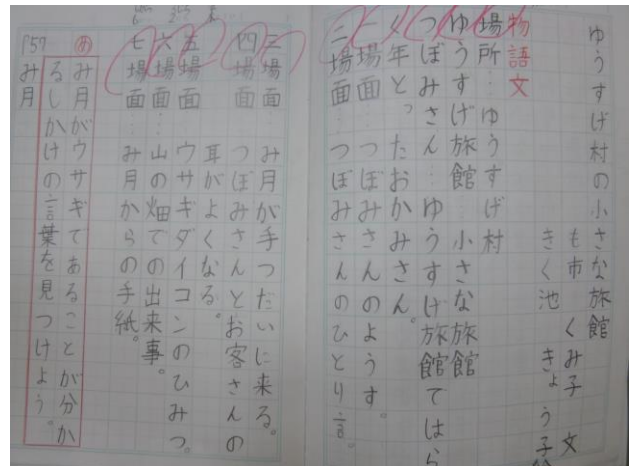 ゆうすげ村の小さな旅館
も市 くみ子 文
きく池 きょう子
物語文
場所…ゆうすげ村
ゆうすげ旅館 小さな旅館
つぼみさん…ゆうすげ旅館ではら
年とったおかみさん。
一場面…つぼみさんのようす。
二場面…つぼみさんのひとり言。
三場面…み月が手つだいに来る。
四場面 つぼみさんとお客さんの
耳がよくなる。
五場面 ウサギダイコンのひみつ。
六場面…山の畑での出来事。
七場面…み月からの手紙。
P57 め
み月がウサギであることが分か
るしかけの言葉を見つけよう。
み月